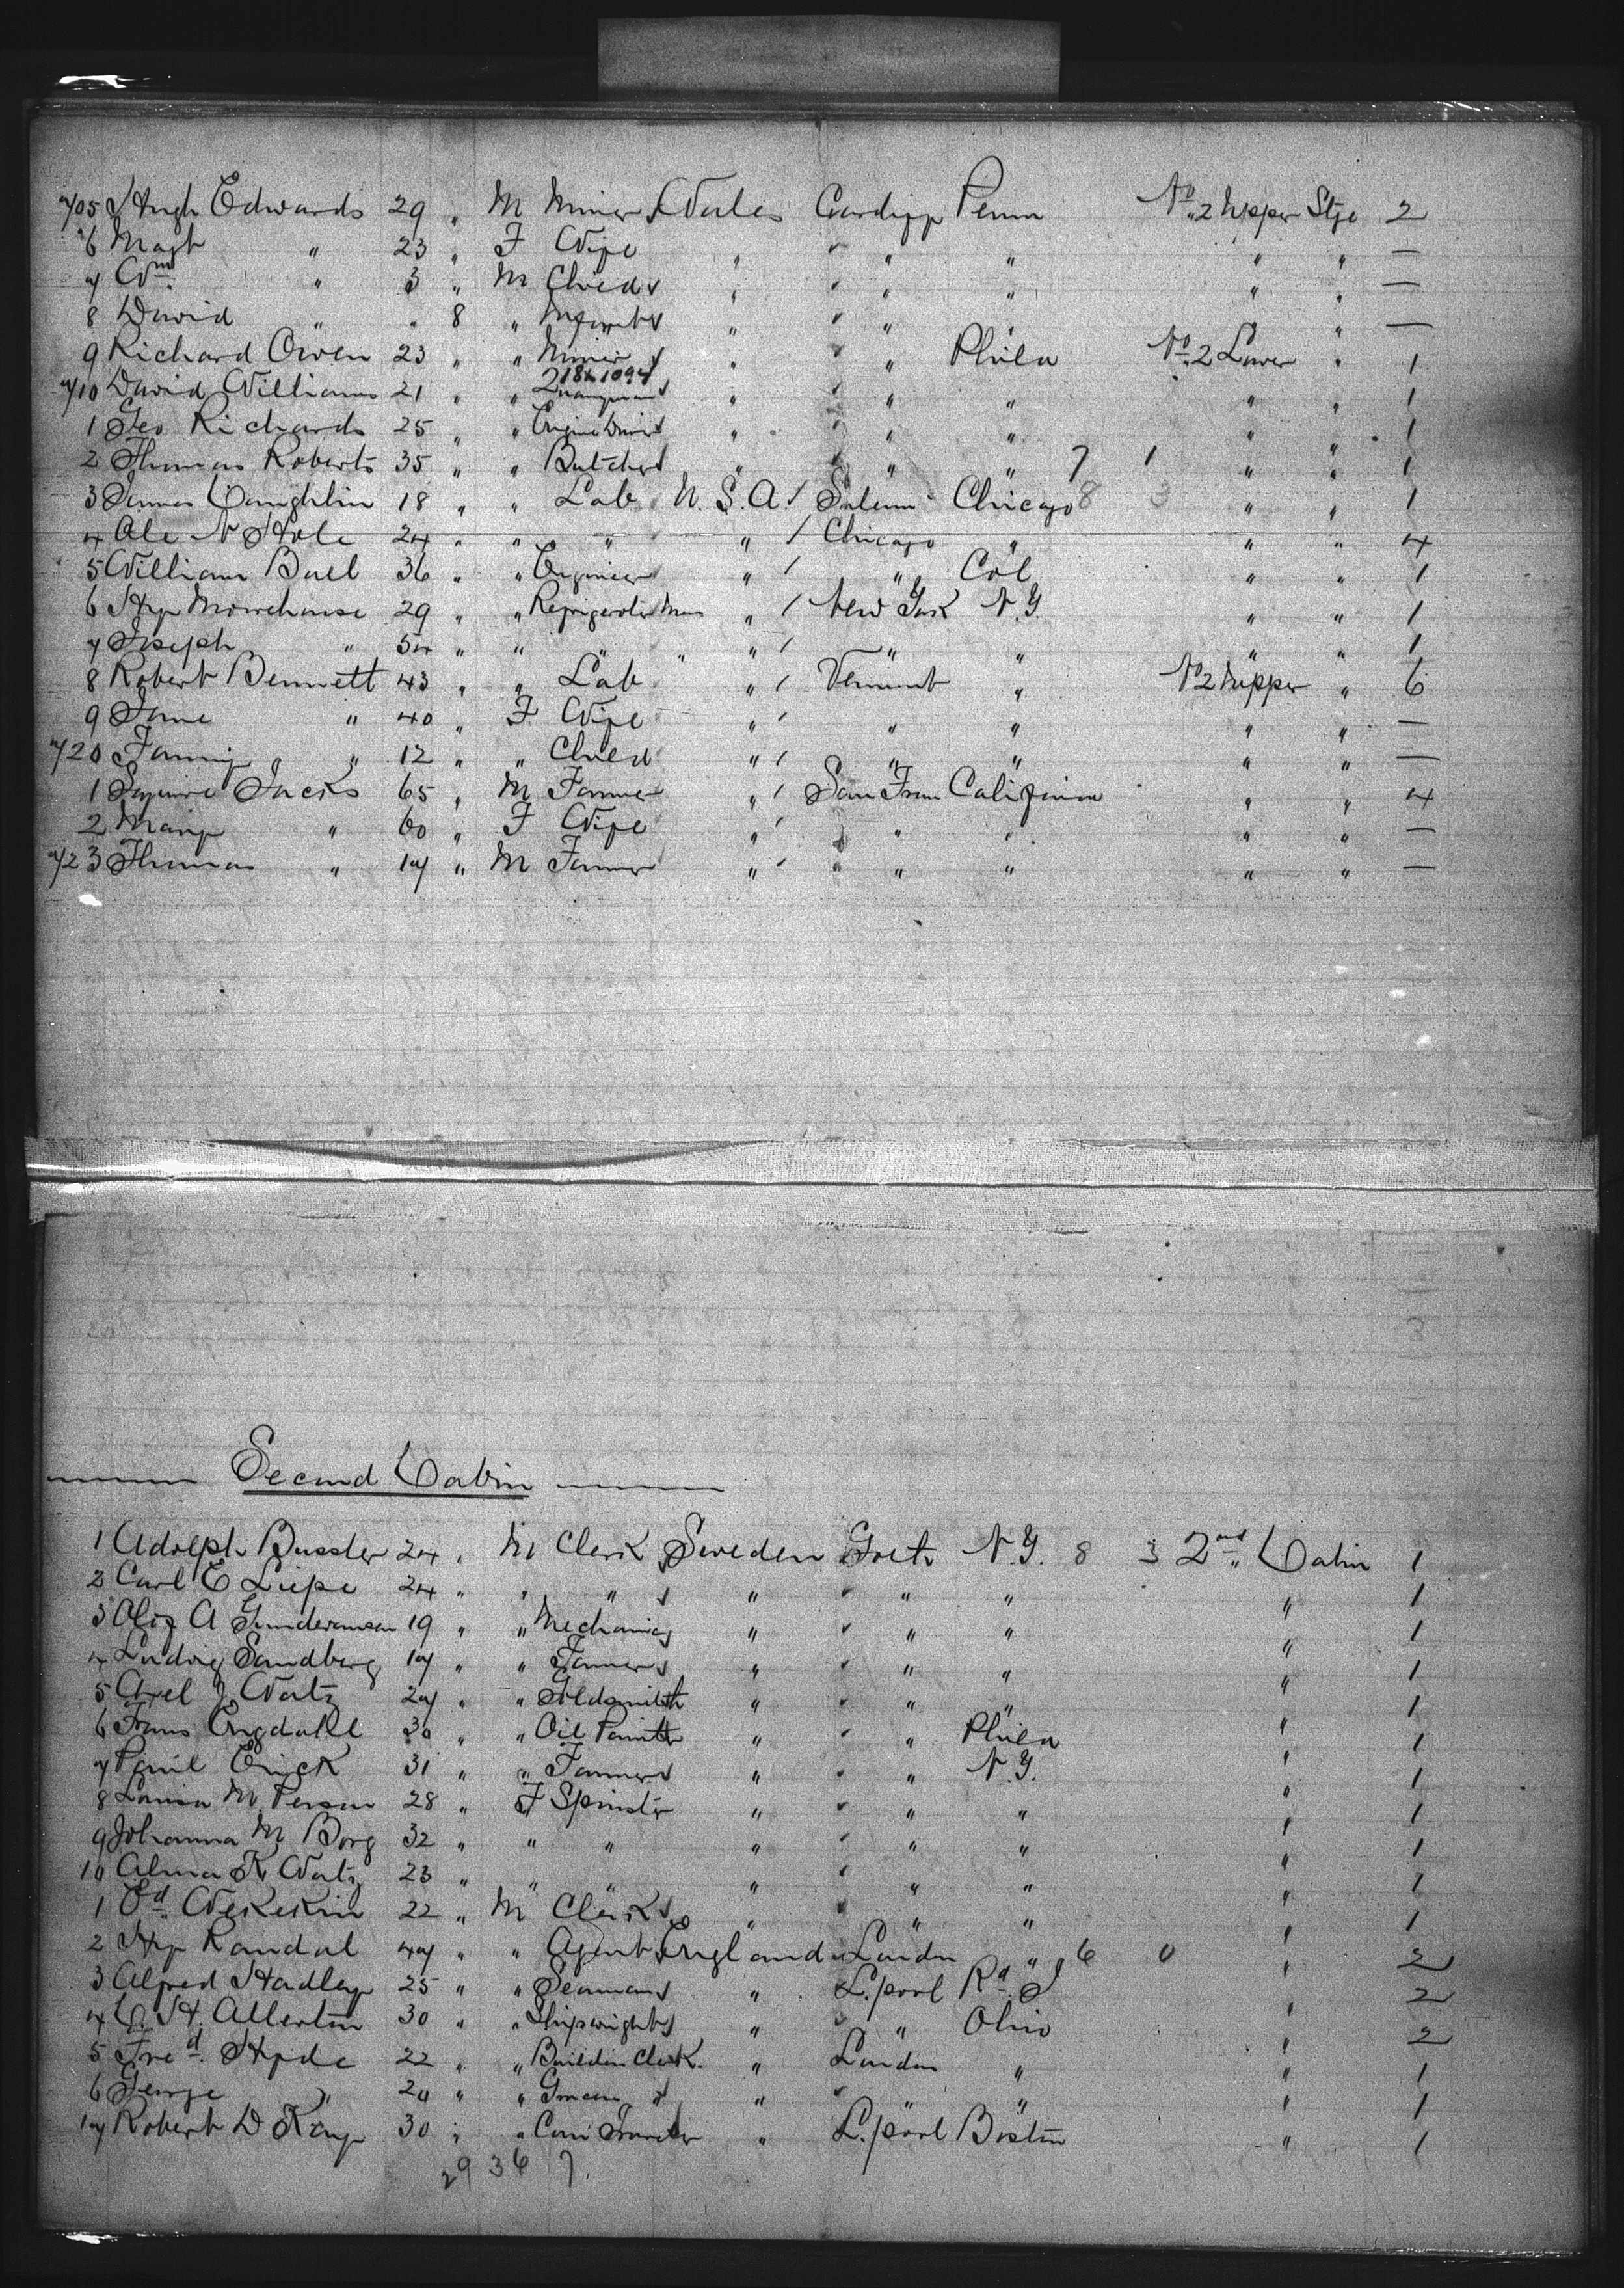 705 Hugh Edwards 29 " M Miner Wales Cardiff Penn No 2 Upper Stge 2
6 Magt " 23 " F Wife " " " " " —
7 Wm " 3 " M Child " " " " " —
8 David " " 8 " Infant " " " " —
9 Richard Owen 23 " " Miner " " Phila No 2 Lower " 1
710 David Williams 21 " " " " " " " 1
1 Geo Richards 25 " " Engine Driver " " " " " 1
2 Thomas Roberts 35 " " Butcher " " " 7 1 " " 1
3 James Coughlin 18 " " Lab U.S.A. Salem Chicago 8 3 " " 1
4 Ale N Hole 24 " " " " Chicago " " " 4
5 William Buel 36 " " Engineer " " Col " " 1
6 Hy Morrehouse 29 " " Refrigerator Man " New York N.Y. " " 1
7 Joseph " 54 " " " " " " " " " 1
8 Robert Bennett 43 " " Lab " Vermont " No 2 Upper " 6
9 Jane " 40 " F Wife " " " " " —
720 Fanny " 12 " " Child " " " " " —
1 Squire Jacks 65 " M Farmer " San Fran California " " 4
2 Mary " 60 " F Wife " " " " " —
723 Thomas " 17 " M Farmer " " " " " —
Second Cabin
1 Adolph Bussler 24 " M Clerk Sweden Goth N.Y. 8 3 2nd Cabin 1
2 Carl E Liepe 24 " " " " " " " 1
3 Olof A Gunderansen 19 " " Mechanic " " " " 1
4 Ludvig Sandberg 17 " " Farmer " " " " 1
5 Axel J. Watz 27 " " Goldsmith " " " " 1
6 Frans Engdahl 30 " " Oil Painter " " Phila " 1
7 Paul Erick 31 " " Farmer " " N.Y. " 1
8 Louisa M Person 28 " F Spinster " " " " 1
9 Johanna M Borg 32 " " " " " " " 1
10 Alma K Watz 23 " " " " " " " 1
1 Ed Wekekin 22 " M Clerk " " " " 1
2 Hy Randal 47 " " Agent England London " 6 0 " 2
3 Alfred Hadley 25 " " Seaman " L.pool Rd I " 2
4 C. H. Allerton 30 " " Shipwright " " Ohio " 2
5 Fred Hyde 22 " " Buildin Clerk " London " " 1
6 George " 20 " " " " " " 1
17 Robert D Kay 30 " " Com Traveler " L.pool Boston " 1
29 36 7.